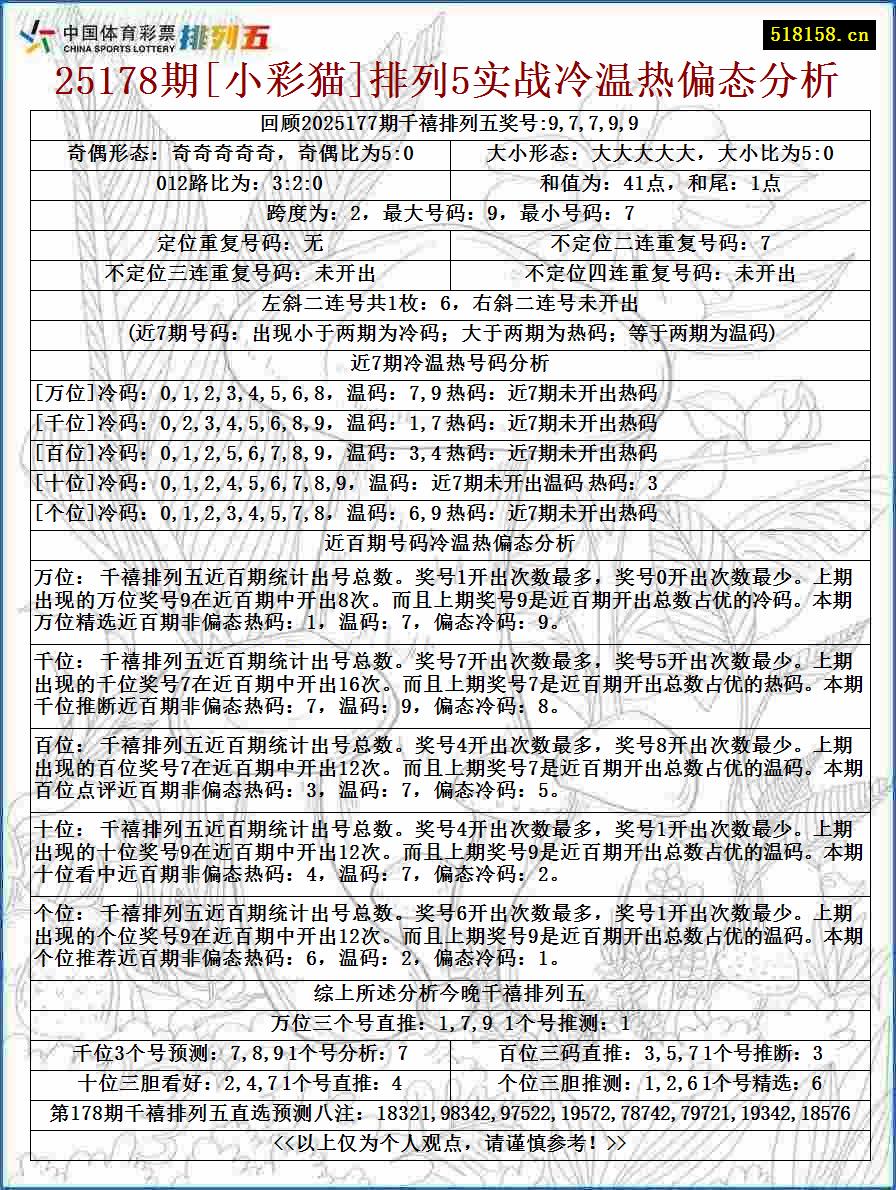 中国体育彩票 排列五
CHINA SPORTS LOTTERY
518158.cn
25178期[小彩猫]排列5实战冷温热偏态分析
回顾2025177期千禧排列五奖号:9,7,7,9,9
奇偶形态: 奇奇奇奇奇, 奇偶比为5:0
大小形态: 大大大大大, 大小比为5:0
012路比为: 3:2:0
和值为: 41点, 和尾: 1点
跨度为: 2, 最大号码: 9, 最小号码: 7
定位重复号码: 无
不定位二连重复号码: 7
不定位三连重复号码: 未开出
不定位四连重复号码: 未开出
左斜二连号共1枚: 6, 右斜二连号未开出
(近7期号码: 出现小于两期为冷码; 大于两期为热码; 等于两期为温码)
近7期冷温热号码分析
[万位]冷码: 0,1,2,3,4,5,6,8, 温码: 7,9 热码: 近7期未开出热码
[千位]冷码: 0,2,3,4,5,6,8,9, 温码: 1,7 热码: 近7期未开出热码
[百位]冷码: 0,1,2,5,6,7,8,9, 温码: 3,4 热码: 近7期未开出热码
[十位]冷码: 0,1,2,4,5,6,7,8,9, 温码: 近7期未开出温码 热码: 3
[个位]冷码: 0,1,2,3,4,5,7,8, 温码: 6,9 热码: 近7期未开出热码
近百期号码冷温热偏态分析
万位: 千禧排列五近百期统计出号总数。奖号1开出次数最多, 奖号0开出次数最少。上期
出现的万位奖号9在近百期中开出8次。而且上期奖号9是近百期开出总数占优的冷码。本期
万位精选近百期非偏态热码: 1, 温码: 7, 偏态冷码: 9。
千位: 千禧排列五近百期统计出号总数。奖号7开出次数最多, 奖号5开出次数最少。上期
出现的千位奖号7在近百期中开出16次。而且上期奖号7是近百期开出总数占优的热码。本期
千位推断近百期非偏态热码: 7, 温码: 9, 偏态冷码: 8。
百位: 千禧排列五近百期统计出号总数。奖号4开出次数最多, 奖号8开出次数最少。上期
出现的百位奖号7在近百期中开出12次。而且上期奖号7是近百期开出总数占优的温码。本期
百位点评近百期非偏态热码: 3, 温码: 7, 偏态冷码: 5。
十位: 千禧排列五近百期统计出号总数。奖号4开出次数最多, 奖号1开出次数最少。上期
出现的十位奖号9在近百期中开出12次。而且上期奖号9是近百期开出总数占优的温码。本期
十位看中近百期非偏态热码: 4, 温码: 7, 偏态冷码: 2。
个位: 千禧排列五近百期统计出号总数。奖号6开出次数最多, 奖号1开出次数最少。上期
出现的个位奖号9在近百期中开出12次。而且上期奖号9是近百期开出总数占优的温码。本期
个位推荐近百期非偏态热码: 6, 温码: 2, 偏态冷码: 1。
综上所述分析今晚千禧排列五
万位三个号直推: 1,7,9 1个号推测: 1
千位3个号预测: 7,8,9 1个号分析: 7
百位三码直推: 3,5,7 1个号推断: 3
十位三胆看好: 2,4,7 1个号直推: 4
个位三胆推测: 1,2,6 1个号精选: 6
第178期千禧排列五直选预测八注: 18321,98342,97522,19572,78742,79721,19342,18576
<<以上仅为个人观点, 请谨慎参考! >>